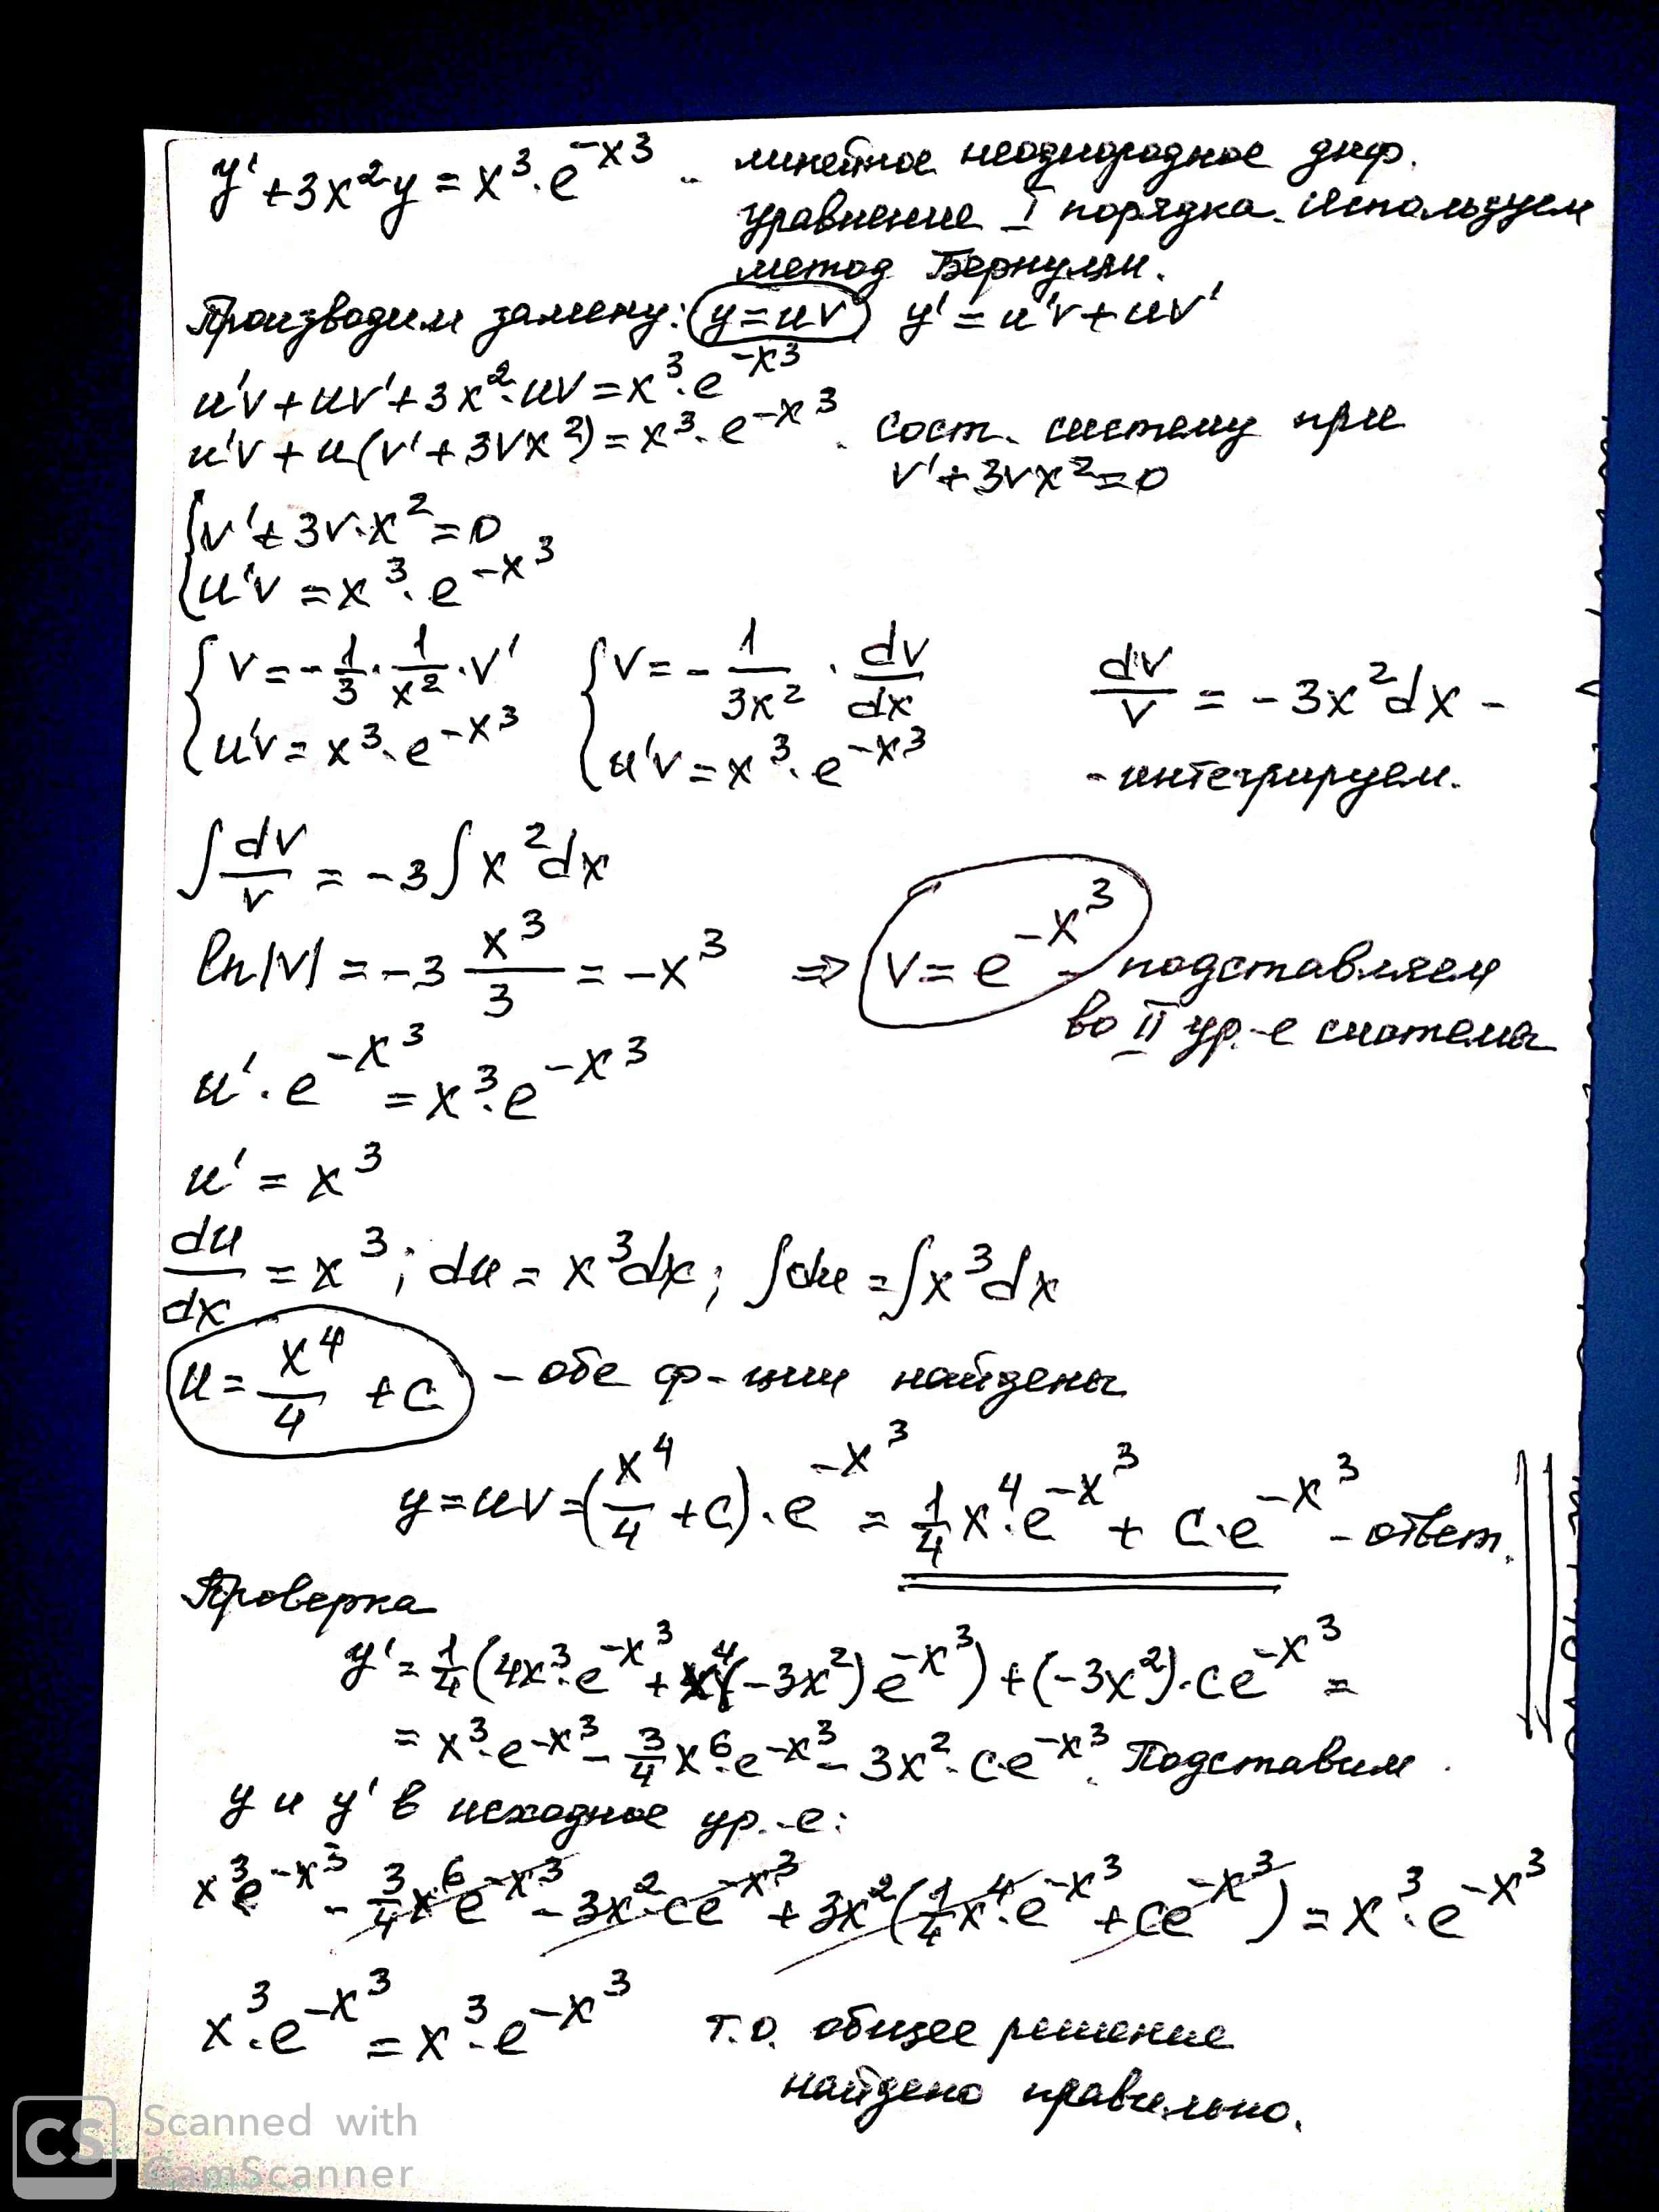 y' + 3x²y = x³·e^(-x³) - линейное неоднородное диф.
уравнение I порядка. Используем
метод Бернулли.
Производим замену: y = uv y' = u'v + uv'
u'v + uv' + 3x²·uv = x³·e^(-x³)
u'v + u(v' + 3vx²) = x³·e^(-x³). Сост. систему при
v' + 3vx² = 0
{ v' + 3v·x² = 0
{ u'v = x³·e^(-x³)
{ v = -1/3·1/x²·v' { v = -1/(3x²)·dv/dx dv/v = -3x²dx -
{ u'v = x³·e^(-x³) { u'v = x³·e^(-x³) - интегрируем.
∫dv/v = -3∫x²dx
ln|v| = -3 x³/3 = -x³ ⇒ v = e^(-x³) - подставляем
во II ур.-е системы
u'·e^(-x³) = x³·e^(-x³)
u' = x³
du/dx = x³; du = x³dx; ∫du = ∫x³dx
u = x⁴/4 + c - обе ф-ции найдены
y = uv = (x⁴/4 + c)·e^(-x³) = 1/4 x⁴·e^(-x³) + c·e^(-x³) - ответ.
Проверка
y' = 1/4(4x³·e^(-x³) + x⁴(-3x²)e^(-x³)) + (-3x²)·ce^(-x³) =
= x³·e^(-x³) - 3/4 x⁶·e^(-x³) - 3x²·ce^(-x³). Подставим
y и y' в исходное ур.-е:
x³e^(-x³) - 3/4 x⁶e^(-x³) - 3x²ce^(-x³) + 3x²(1/4 x⁴·e^(-x³) + ce^(-x³)) = x³·e^(-x³)
x³·e^(-x³) = x³·e^(-x³) т.о. общее решение
найдено правильно.
CS Scanned with
CamScanner